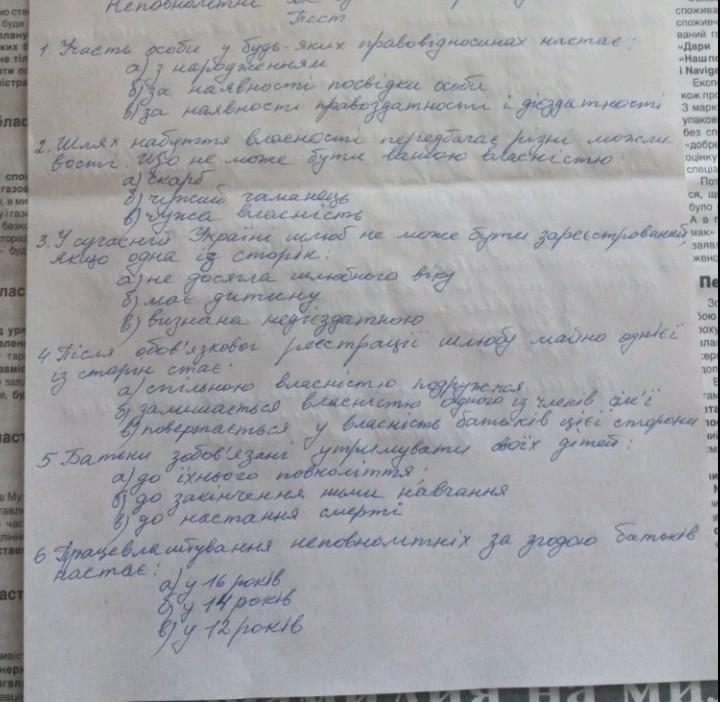 Неповнолітні як
Тест
1. Участь особи у будь-яких правовідносинах настає:
а) з народженням
б) за наявності посвідки особи
в) за наявности правоздатности і дієздатності
2. Шлях набуття власності передбачає різні можли
вості. Що не може бути вашою власністю:
а) скарб
б) чужий гаманець
в) чужа власність
3. У сучасній Україні шлюб не може бути зареєстрований,
якщо одна із сторін:
а) не досягла шлюбного віку
б) має дитину
в) визнана недієздатною
4. Після обов'язкової реєстрації шлюбу майно однієї
із сторін стає:
а) спільною власністю подружжя
б) залишається власністю одного із членів сім'ї
в) повертається у власність батьків цієї сторони
5 Батьки зобов'язані утримувати своїх дітей:
а) до їхнього повноліття;
б) до закінчення ними навчання
в) до настання смерті
6 Працевлаштування неповнолітніх за згодою батьків
настає:
а) у 16 років
б) у 14 років
в) у 12 років